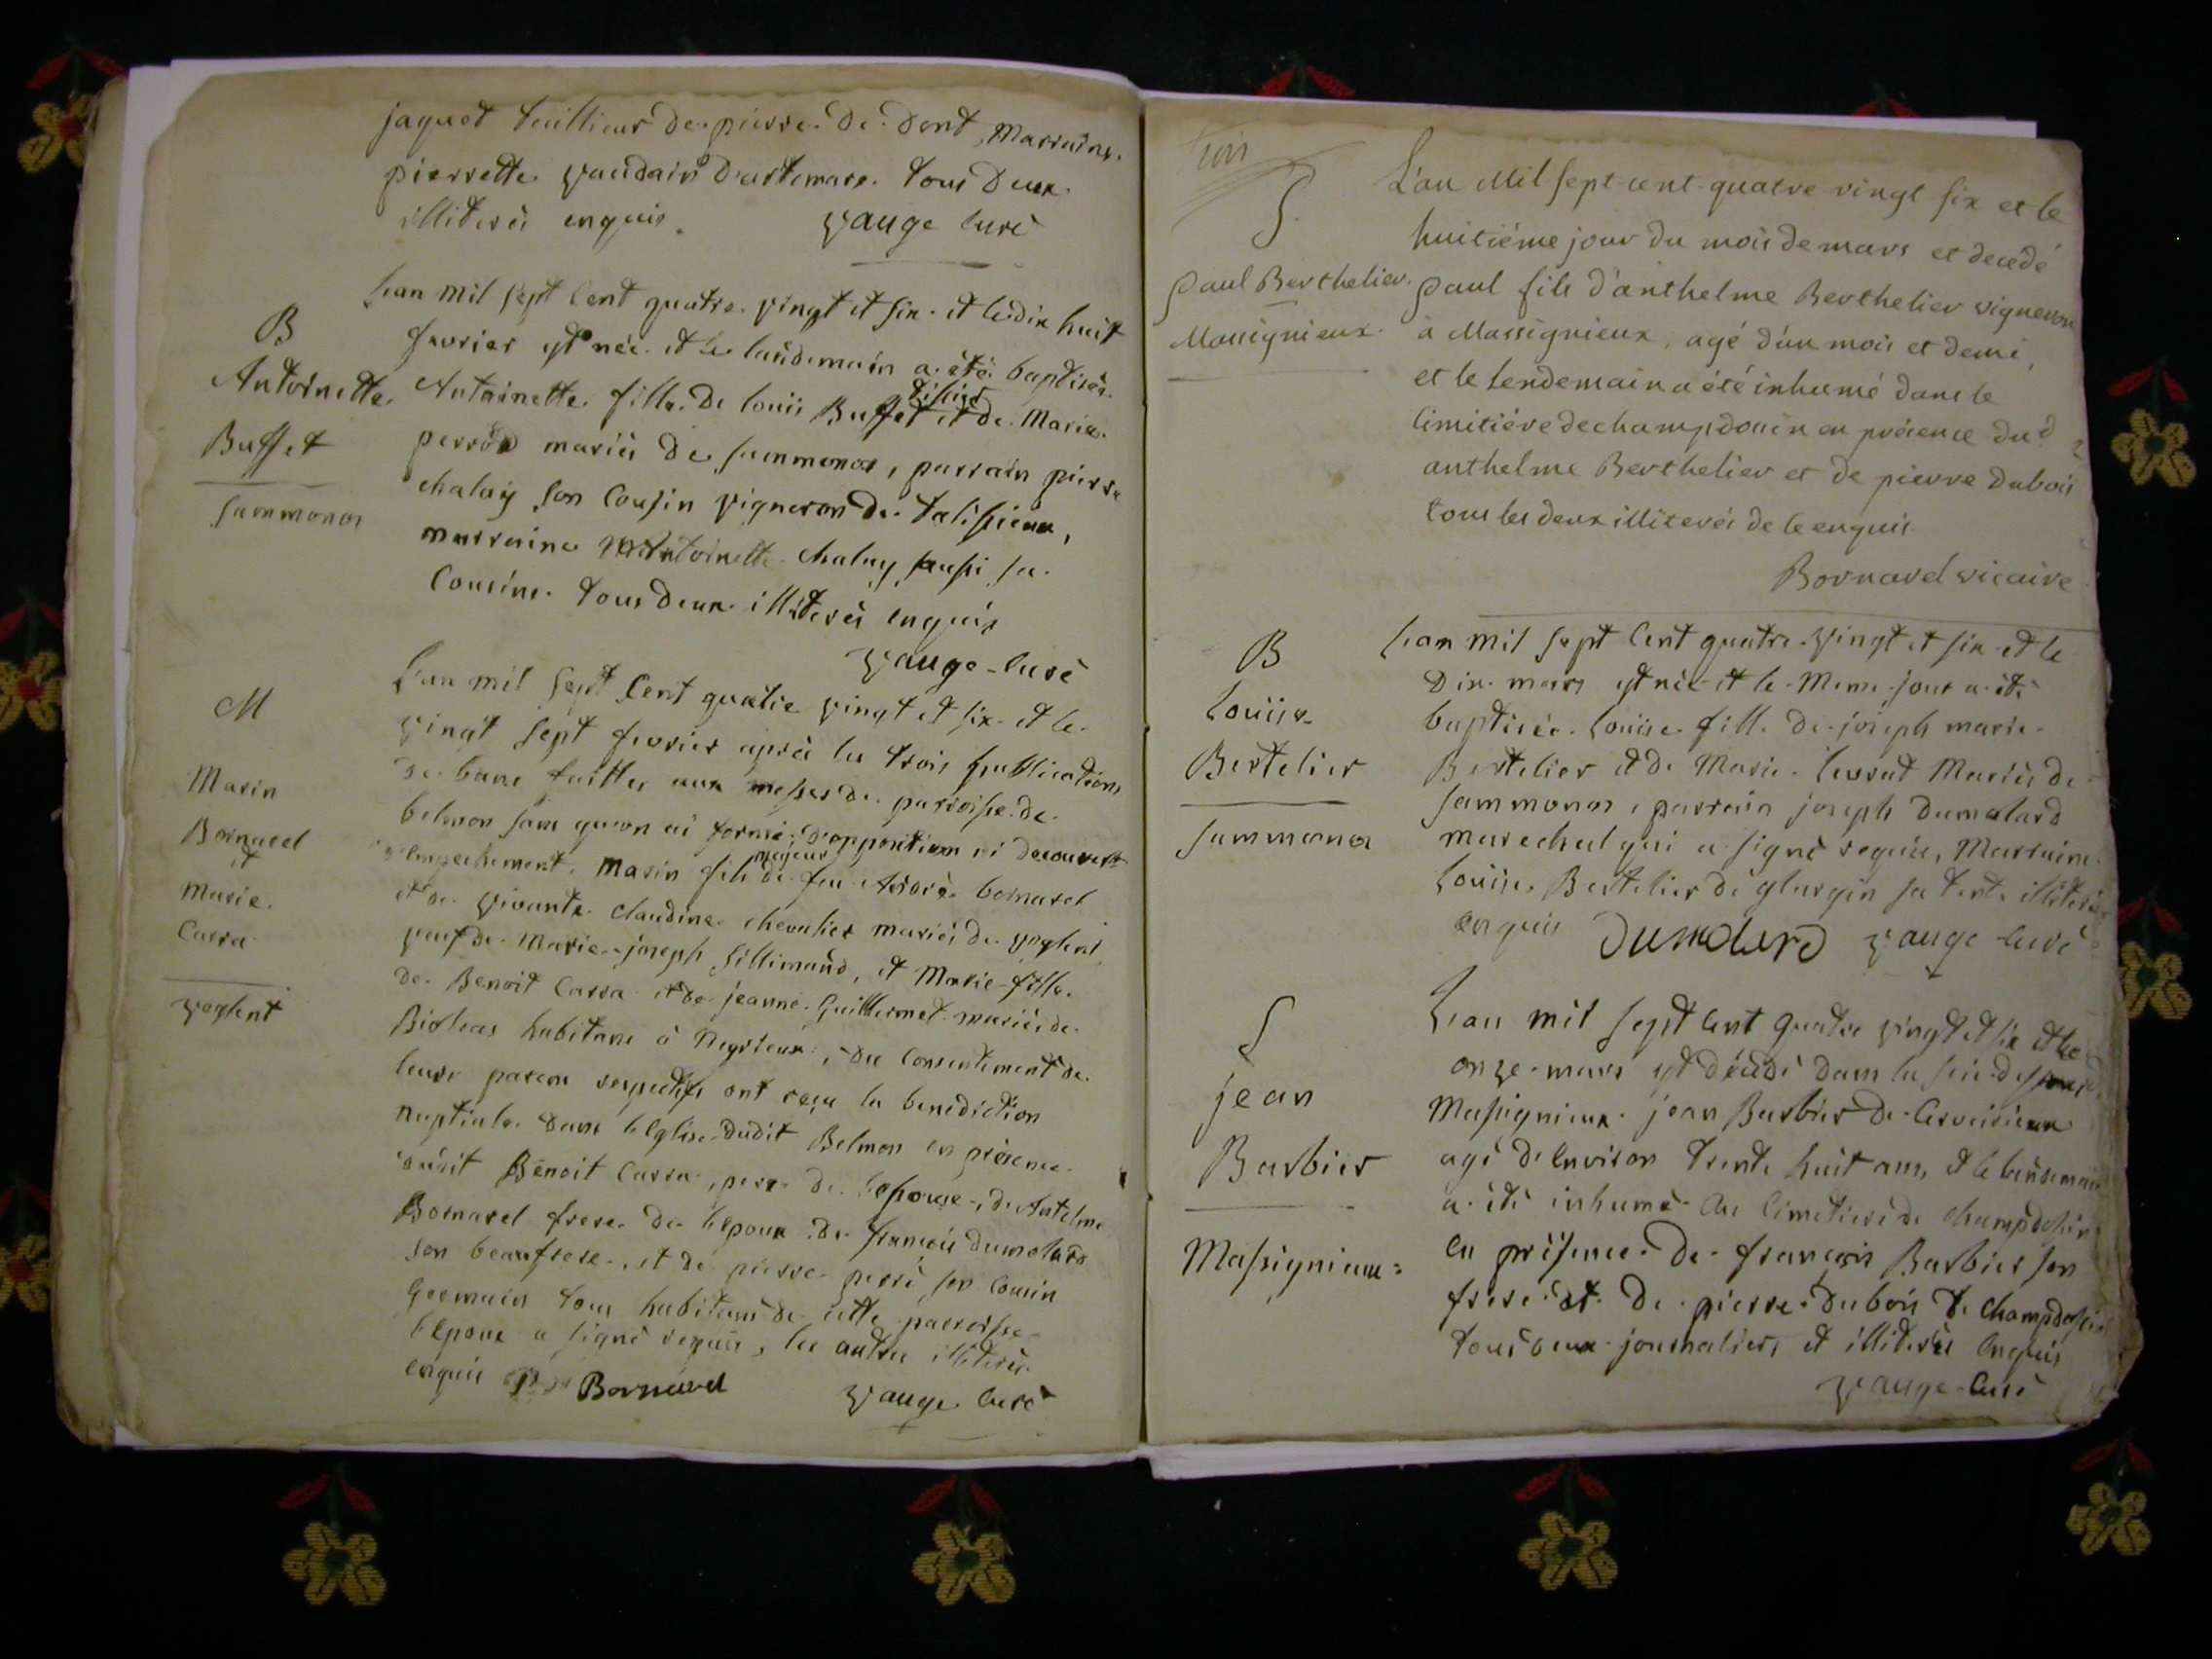 jaquet taillieur de pierre de dont, Marraine
pierrette vaudain d'artemare. tous deux
illiterés enquis. vauge curé
B
Antoinette
Buffet
summonor
Lan mil sept cent quatre vingt et six et le dix huit
fevrier est née et le laudemain a été baptisée
Antoinette fille de louis Buffet et de Marie
perrod mariés de summonor, parrain pierre
chalay son Cousin vigneron de talissieux,
marraine Antoinette chalay aussi sa
Cousine tous deux illiterés enquis
vauge curé
M
Marin
Bornarel
et
Marie
Carra
voglent
Lan mil sept Cent quatre vingt et six et le
vingt sept fevrier après les trois publications
de bans faittes aux messes de parroisse de
belmon sans qu'on ai formé d'opposition ni decouvert
d'empechement, Marin fils majeur de feu André bornarel
et de vivante claudine chevalier mariés de voglent,
veuf de Marie joseph sillimand, et Marie fille
de Benoit Carra et de jeanne Guillermet mariés de
Bioleas habitans à Neyrieux, du Consentement de
leurs parens respectifs ont reçu la benediction
nuptiale dans l'eglise dudit Belmon en présence
dudit Benoit Carra, pere de l'epouse, de Antelme
Bornarel frere de l'epoux de françois dumolard
son beaufrere, et de pierre perré son Cousin
Germain tous habitans de cette parroisse
l'epoux a signé requis, les autres illiterés
enquis Bornarel vauge curé
S.
paul Berthelier.
Massignieux.
L'an Mil sept cent quatre vingt six et le
huitiéme jour du mois de mars et decedé
paul fils d'anthelme Berthelier vigneron
à Massignieux, agé d'un mois et demi,
et le lendemain a été inhumé dans le
cimitiére de champdossin en présence dud
anthelme Berthelier et de pierre Dubois
tous les deux illiterés de ce enquis.
Bornarel vicaire
B
Louise
Bertelier
summonor
Lan mil sept Cent quatre vingt et six et le
Dix mars est née et le Meme jour a été
baptisée Louise fille de joseph marie
Bertelier et de Marie Mariés de
summonor, parrain joseph dumolard
marechal qui a signé requis, Marraine
Louise Bertelier de glargin sa tente illiterée
enquis Dumolard vauge curé
S
jean
Barbier
Massignieux
Lan mil sept Cent quatre vingt et six et le
onze mars est décédé dans
Massignieux jean Barbier de Cerveirieux
agé d'environ trente huit ans, et le laudemain
a été inhumé au Cimetiere de champdossin
en présence de françois Barbier son
frere et de pierre dubois de champdossin
tous deux journaliers et illiterés enquis
vauge Curé